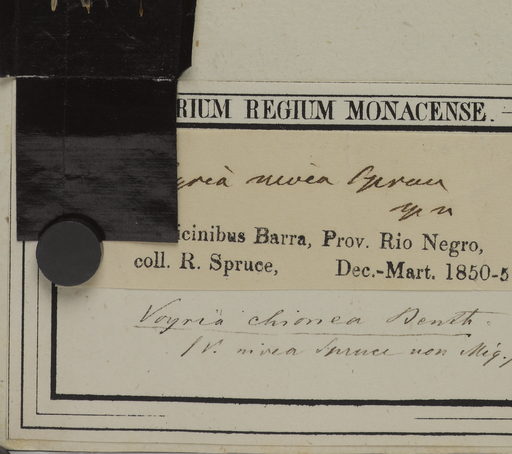 RIUM REGIUM MONACENSE.
yria nivea Spruce
icinibus Barra, Prov. Rio Negro,
coll. R. Spruce, Dec.-Mart. 1850-5
Voyria chionea Benth.
(V. nivea Spruce non Miq.)